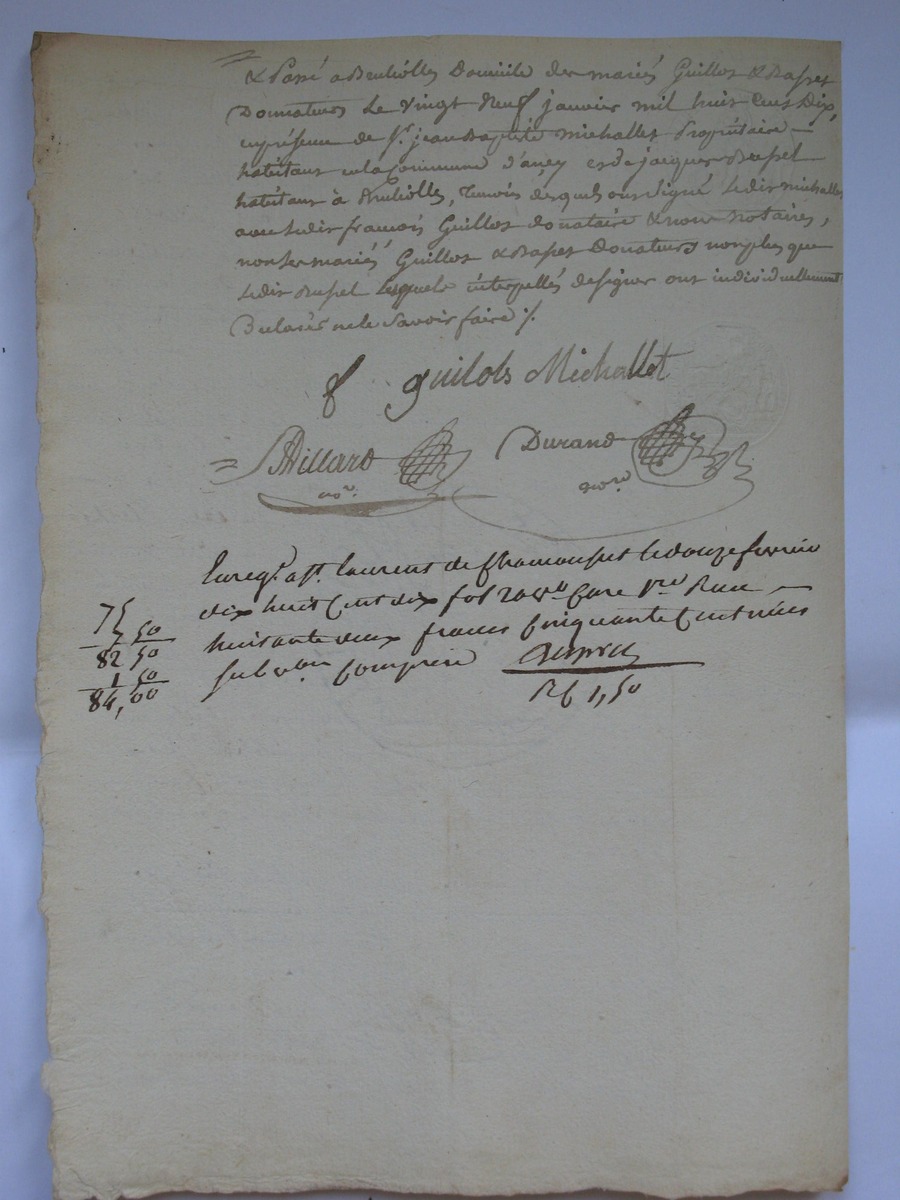 & Passé a Brulioles Domicile des mariés Guillot & Basset
Donnateurs Le vingt Neuf janvier mil huit Cens Dix,
en présence de Sr. jean Baptiste Michallet Propriétaire
habitant en la Commune d'ancy et de jacques
habitant à Brulioles, Temoins desquels ont signé Ledit Michallet
avec Ledit francois Guillot donataire & nous Notaires,
non Les mariés Guillot & Basset Donateurs non plus que
Ledit Lesquels interpellés de signer ont individuellement
Declarés ne le Savoir faire ./.
f guilots Michallet
Billard Durand
nore. nore
Enregé. a St. laurent de Chamousset le douze fevrier
dix huit Cent dix fol 20 Case 1re Recu
75 huitante deux francs Cinquante Centimes
7 50
82 50 subvon Comprise
1 50
84,00
Rf 1,50